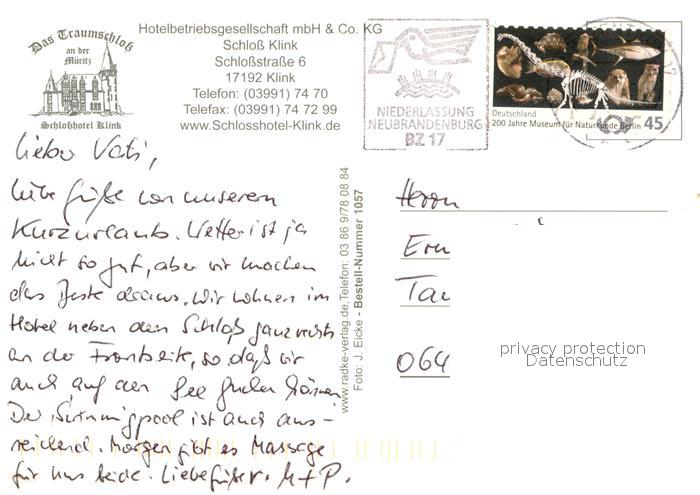 Das Traumschloß
an der
Müritz
Schloßhotel Klink
Hotelbetriebsgesellschaft mbH & Co. KG
Schloß Klink
Schloßstraße 6
17192 Klink
Telefon: (03991) 74 70
Telefax: (03991) 74 72 99
www.Schlosshotel-Klink.de
NIEDERLASSUNG
NEUBRANDENBURG
BZ 17
Deutschland
200 Jahre Museum für Naturkunde Berlin 45
Lieber Vati,
liebe Grüße von unserem
Kurzurlaub. Wetter ist ja
nicht so gut, aber wir machen
das Beste draus. Wir wohnen im
Hotel neben dem Schloß ganz rechts
an der Frontseite, so daß wir
auch auf den See gucken können.
Der Swimmingpool ist auch aus-
reichend. Morgen gibt es Massage
für uns beide. Liebe Grüße v. M + P.
www.radke-verlag.de, Telefon: 03 86 9/78 08 84
Foto: J. Eicke - Bestell-Nummer 1057
Herrn
Ern
Tau
064
privacy protection
Datenschutz